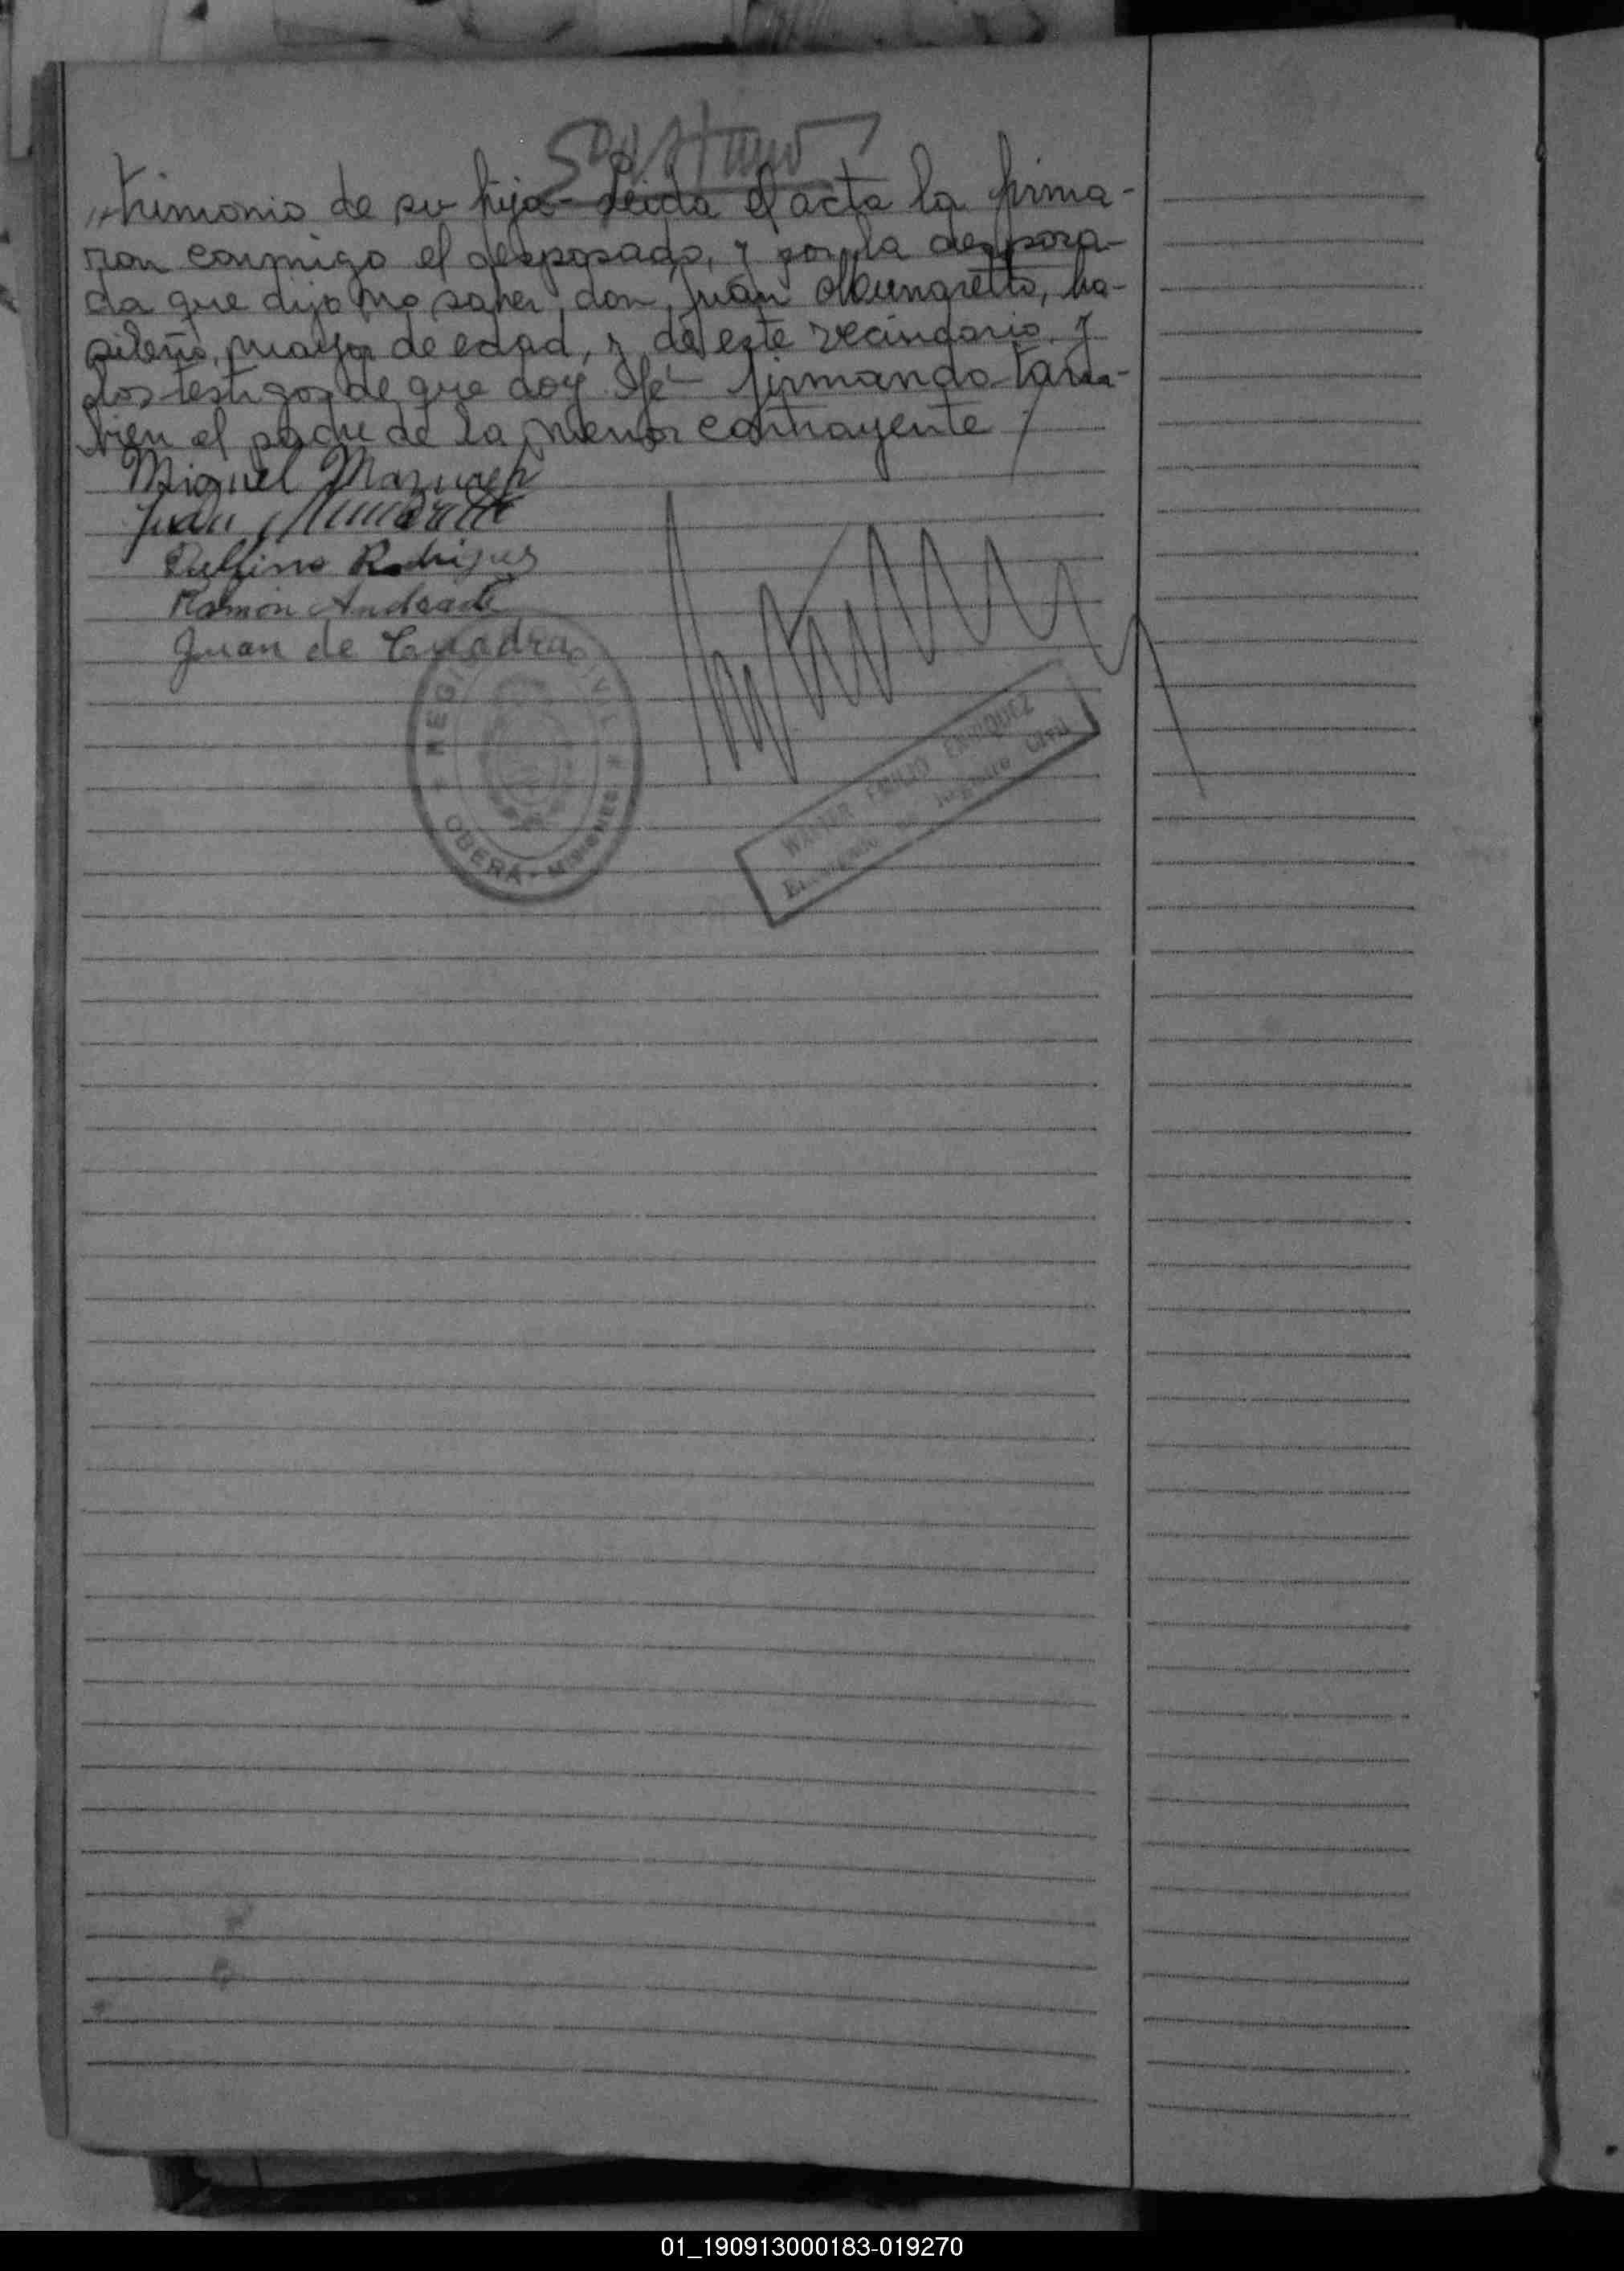 trimonio de su hija - Leida el acta la firma-
ron conmigo el desposado, y por la desposa-
da que dijo no saber, don Juan Mungretto, ba-
sileño, mayor de edad, y de este vecindario y
los testigos de que doy fé - firmando tam-
bien el padre de la menor contrayente
Miguel Mazurep
Juan
Rodriguez
Ramón Andrade
Juan de Cuadra
REGISTRO CIVIL
OBERA - MISIONES
ENRIQUEZ
Encargado de Registro Civil
01_190913000183-019270